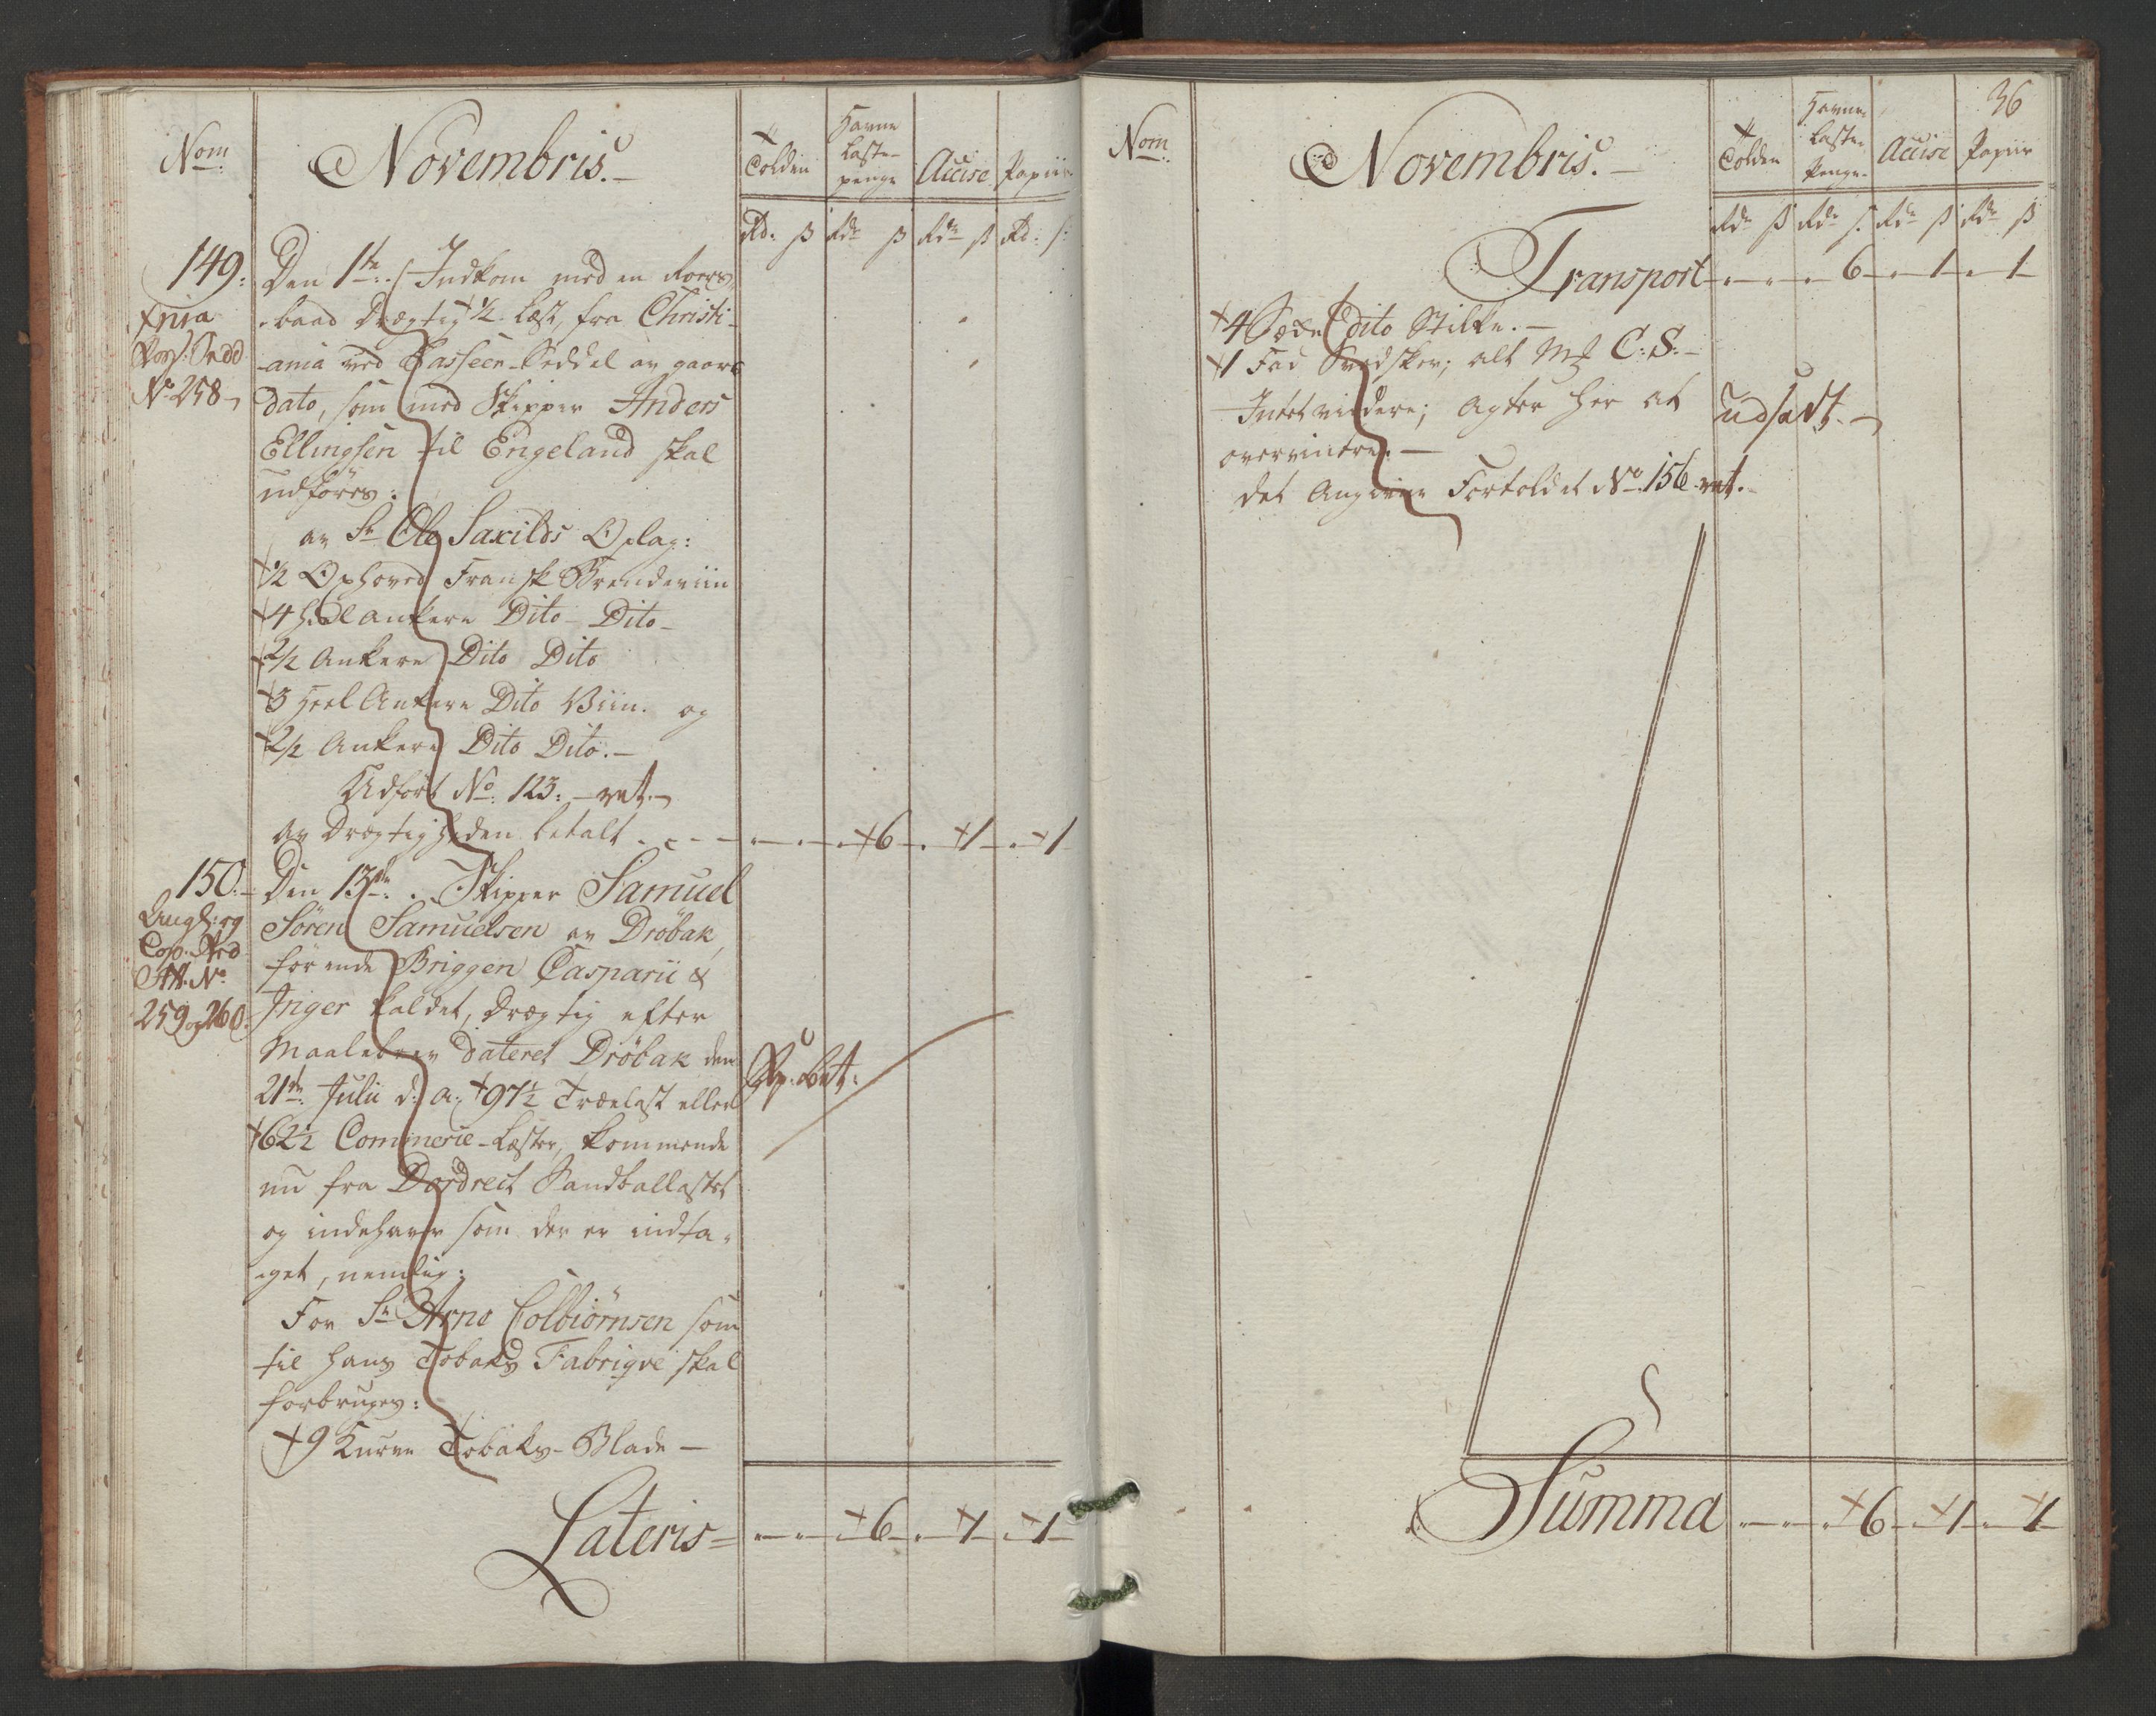 Nom:
Novembris.
Tolden
Havne
Laste-
penge
Accise
Papiir
Rd. ß Rdr ß Rdr ß Rd: s:
149:
Xnia
Pass: Sedd
No 258
Den 1te: Indkom med en Roers
baad drægtig 1/2 Læst, fra Christi-
ania med Passeer-Seddel av gaars
dato, som med Skipper Anders
Ellingsen til Engeland skal
udføres:
av Sr Ole Saxilds Oplag:
1/2 Oxhoved Fransk Brendeviin
4 heel ankere Dito Dito
2/2 Ankere Dito Dito
3 Heel Ankere Dito Viin. og
2/2 Ankere Dito Dito.
Udført No: 123: - ret.
Av Drægtigheden betalt - - - 6 - 1 - 1
150.
Angb: og
No
259 og 260
Den 13de: Skipper Samuel
Søren Samuelsen av Drøbak,
førende Briggen Casparii &
Inger kaldet, drægtig efter
Maalebrev dateret Drøbak den
21de Julii d: a: 97½ Trælast eller
62½ Commerce-Læster, kommende
nu fra Dordrect Sandballastet
og indehaver som der er indta-
get, nemlig:
For Sr Arne Colbiørnsen som
til hans Tobaks Fabriqve skal
forbruges:
9 Kurve Tobaks-Blade -
Lateris = 6 - 1 - 1
36
Nom:
Novembris.
Tolden
Havne
Laste
Penge
Accise
Papiir
Rdr ß Rdr s. Rdr ß Rdr ß
Transport - - - 6 - 1 - 1
4 dito Stilke.
1 Fad Svedsker; alt Mk C: S:
Intet videre; Agter her at
overvintre.
udsadt.
det Angivne Fortoldet No 156 ret.
Summa - - - 6 - 1 - 1